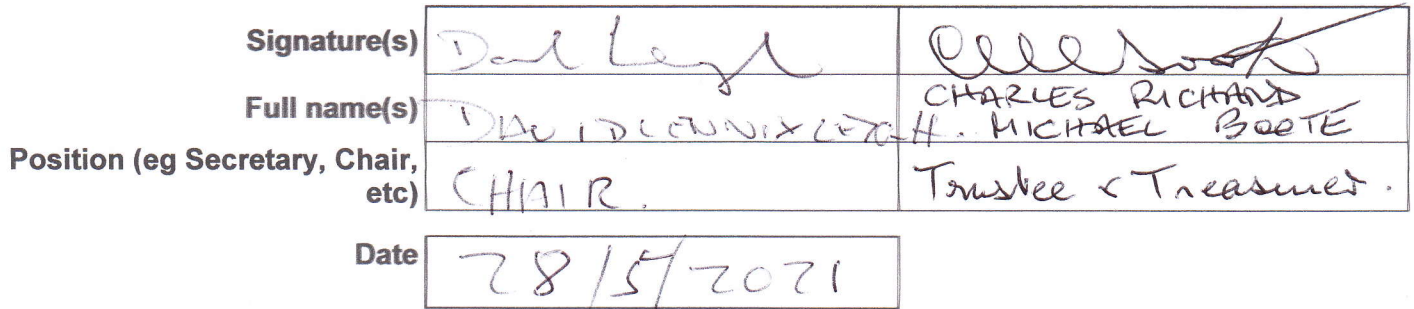 Signature(s)
Full name(s) DAVID LENNIX LEIGH. CHARLES RICHARD
MICHAEL BOOTE
Position (eg Secretary, Chair,
etc) CHAIR. Trustee & Treasurer.
Date 28/5/2021